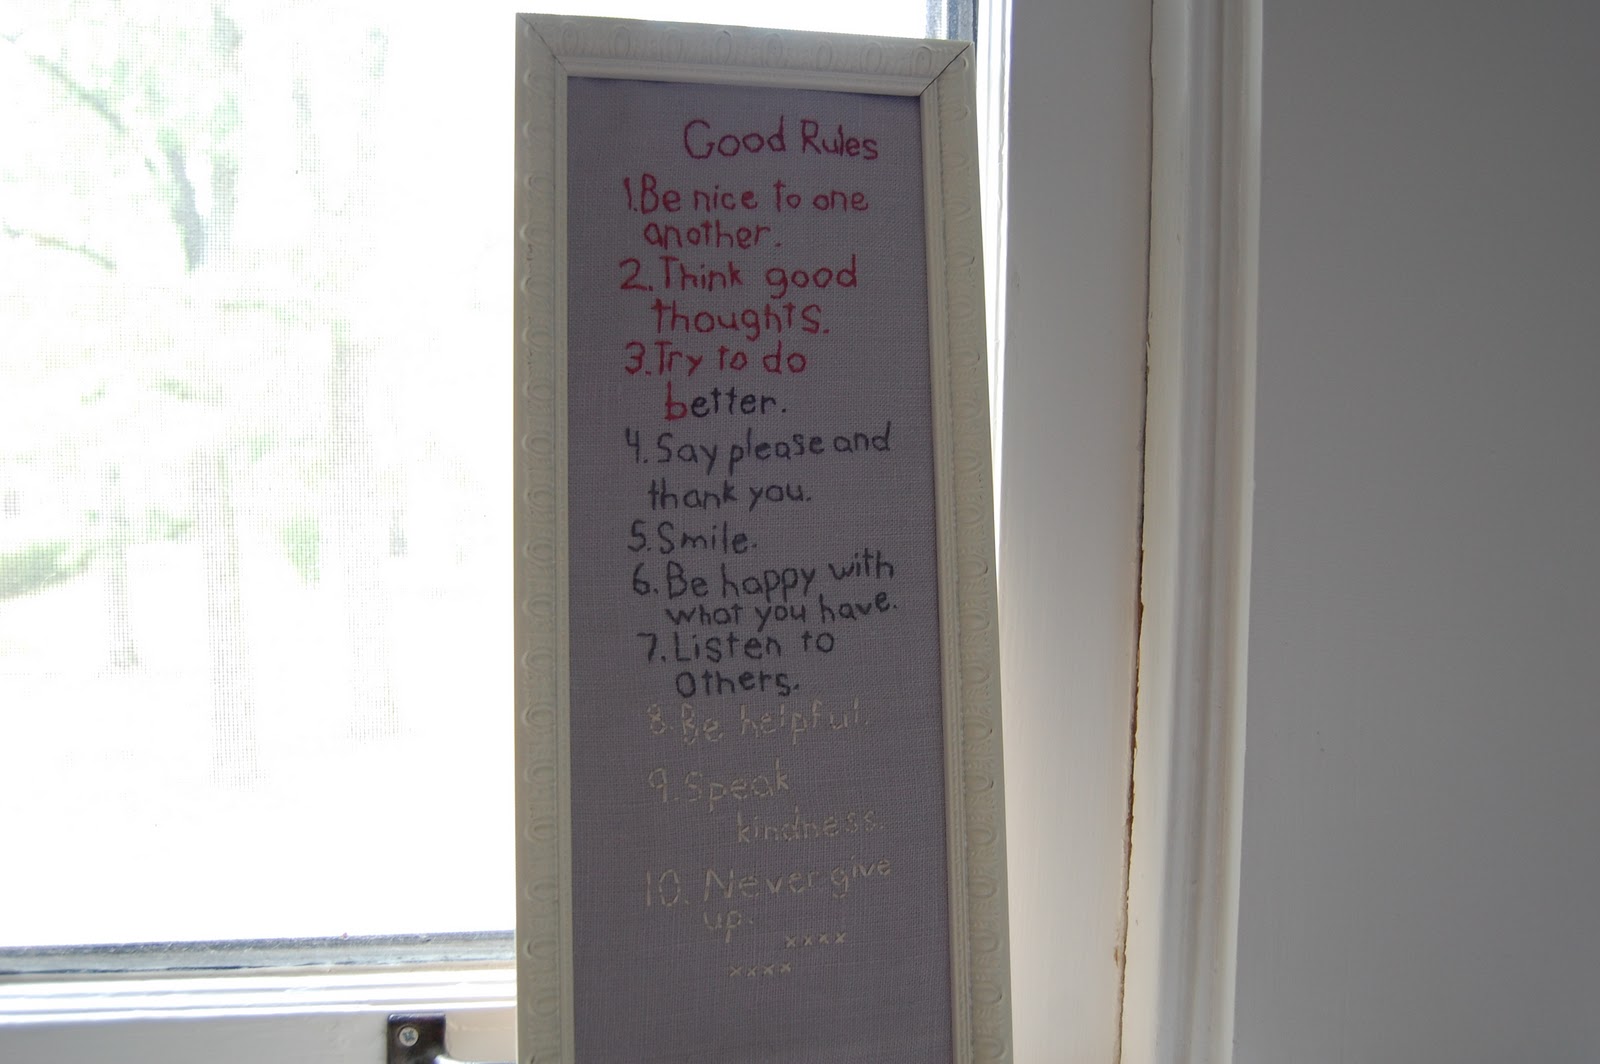 Good Rules
1. Be nice to one
another.
2. Think good
thoughts.
3. Try to do
better.
4. Say please and
thank you.
5. Smile.
6. Be happy with
what you have.
7. Listen to
others.
8. Be helpful.
9. Speak
kindness.
10. Never give
up.
xxxx
xxxx